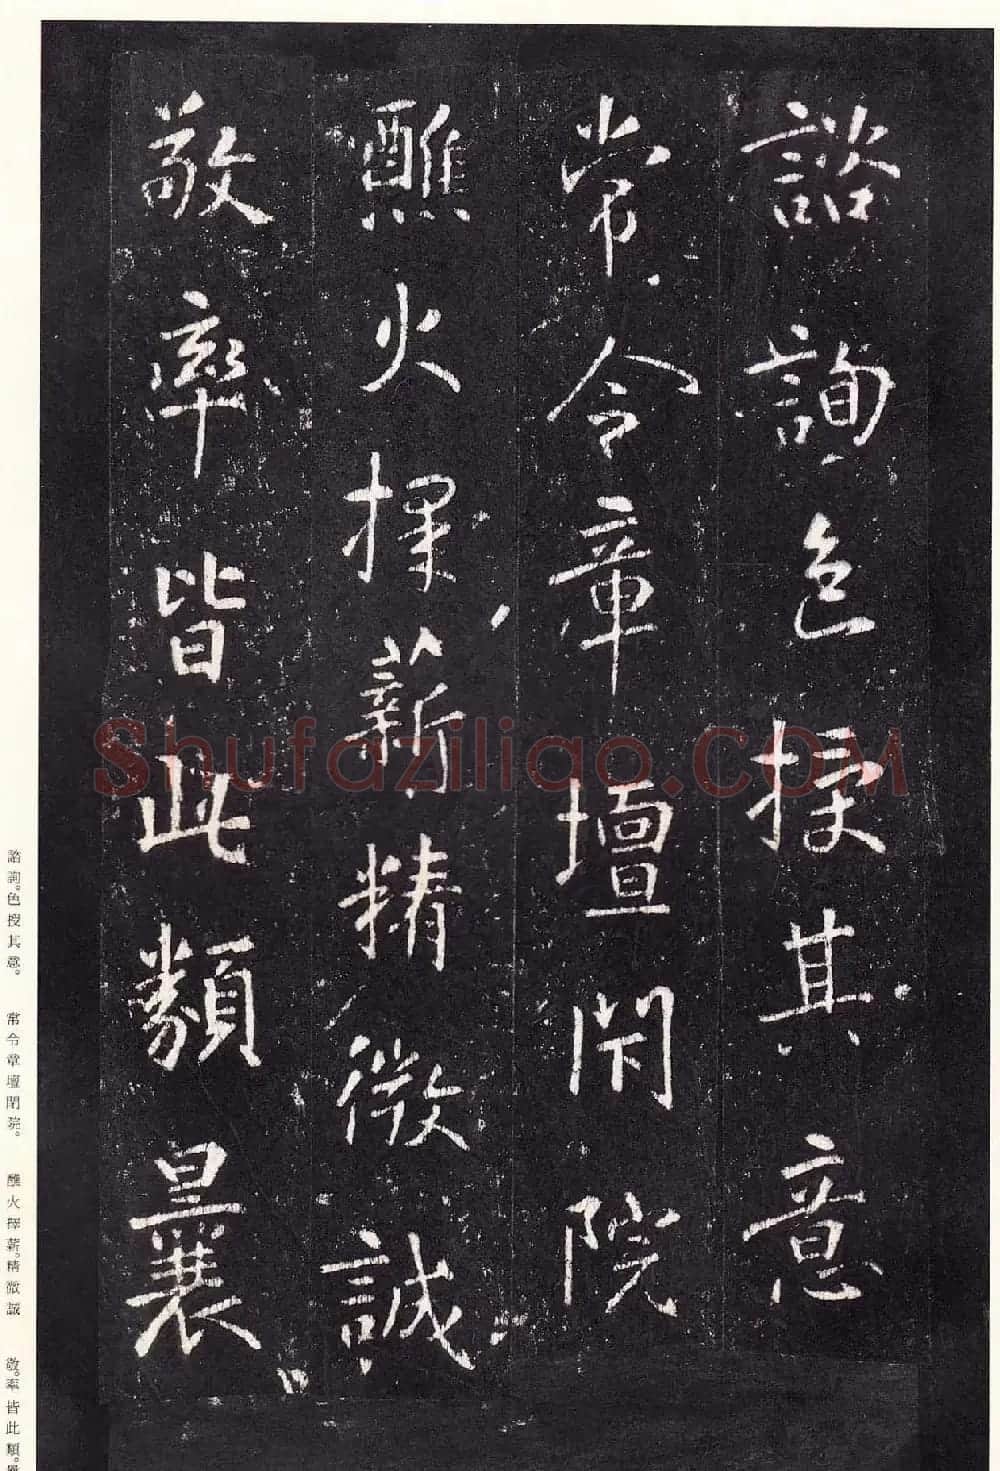 諮詢色授其意
常令章壇閑院
醮火擇薪精微誠
敬率皆此類曩
Shufaziliao.COM
諮詢。色授其意。 常令章壇閉院。 醮火擇薪。精微誠 敬。率皆此類。曩